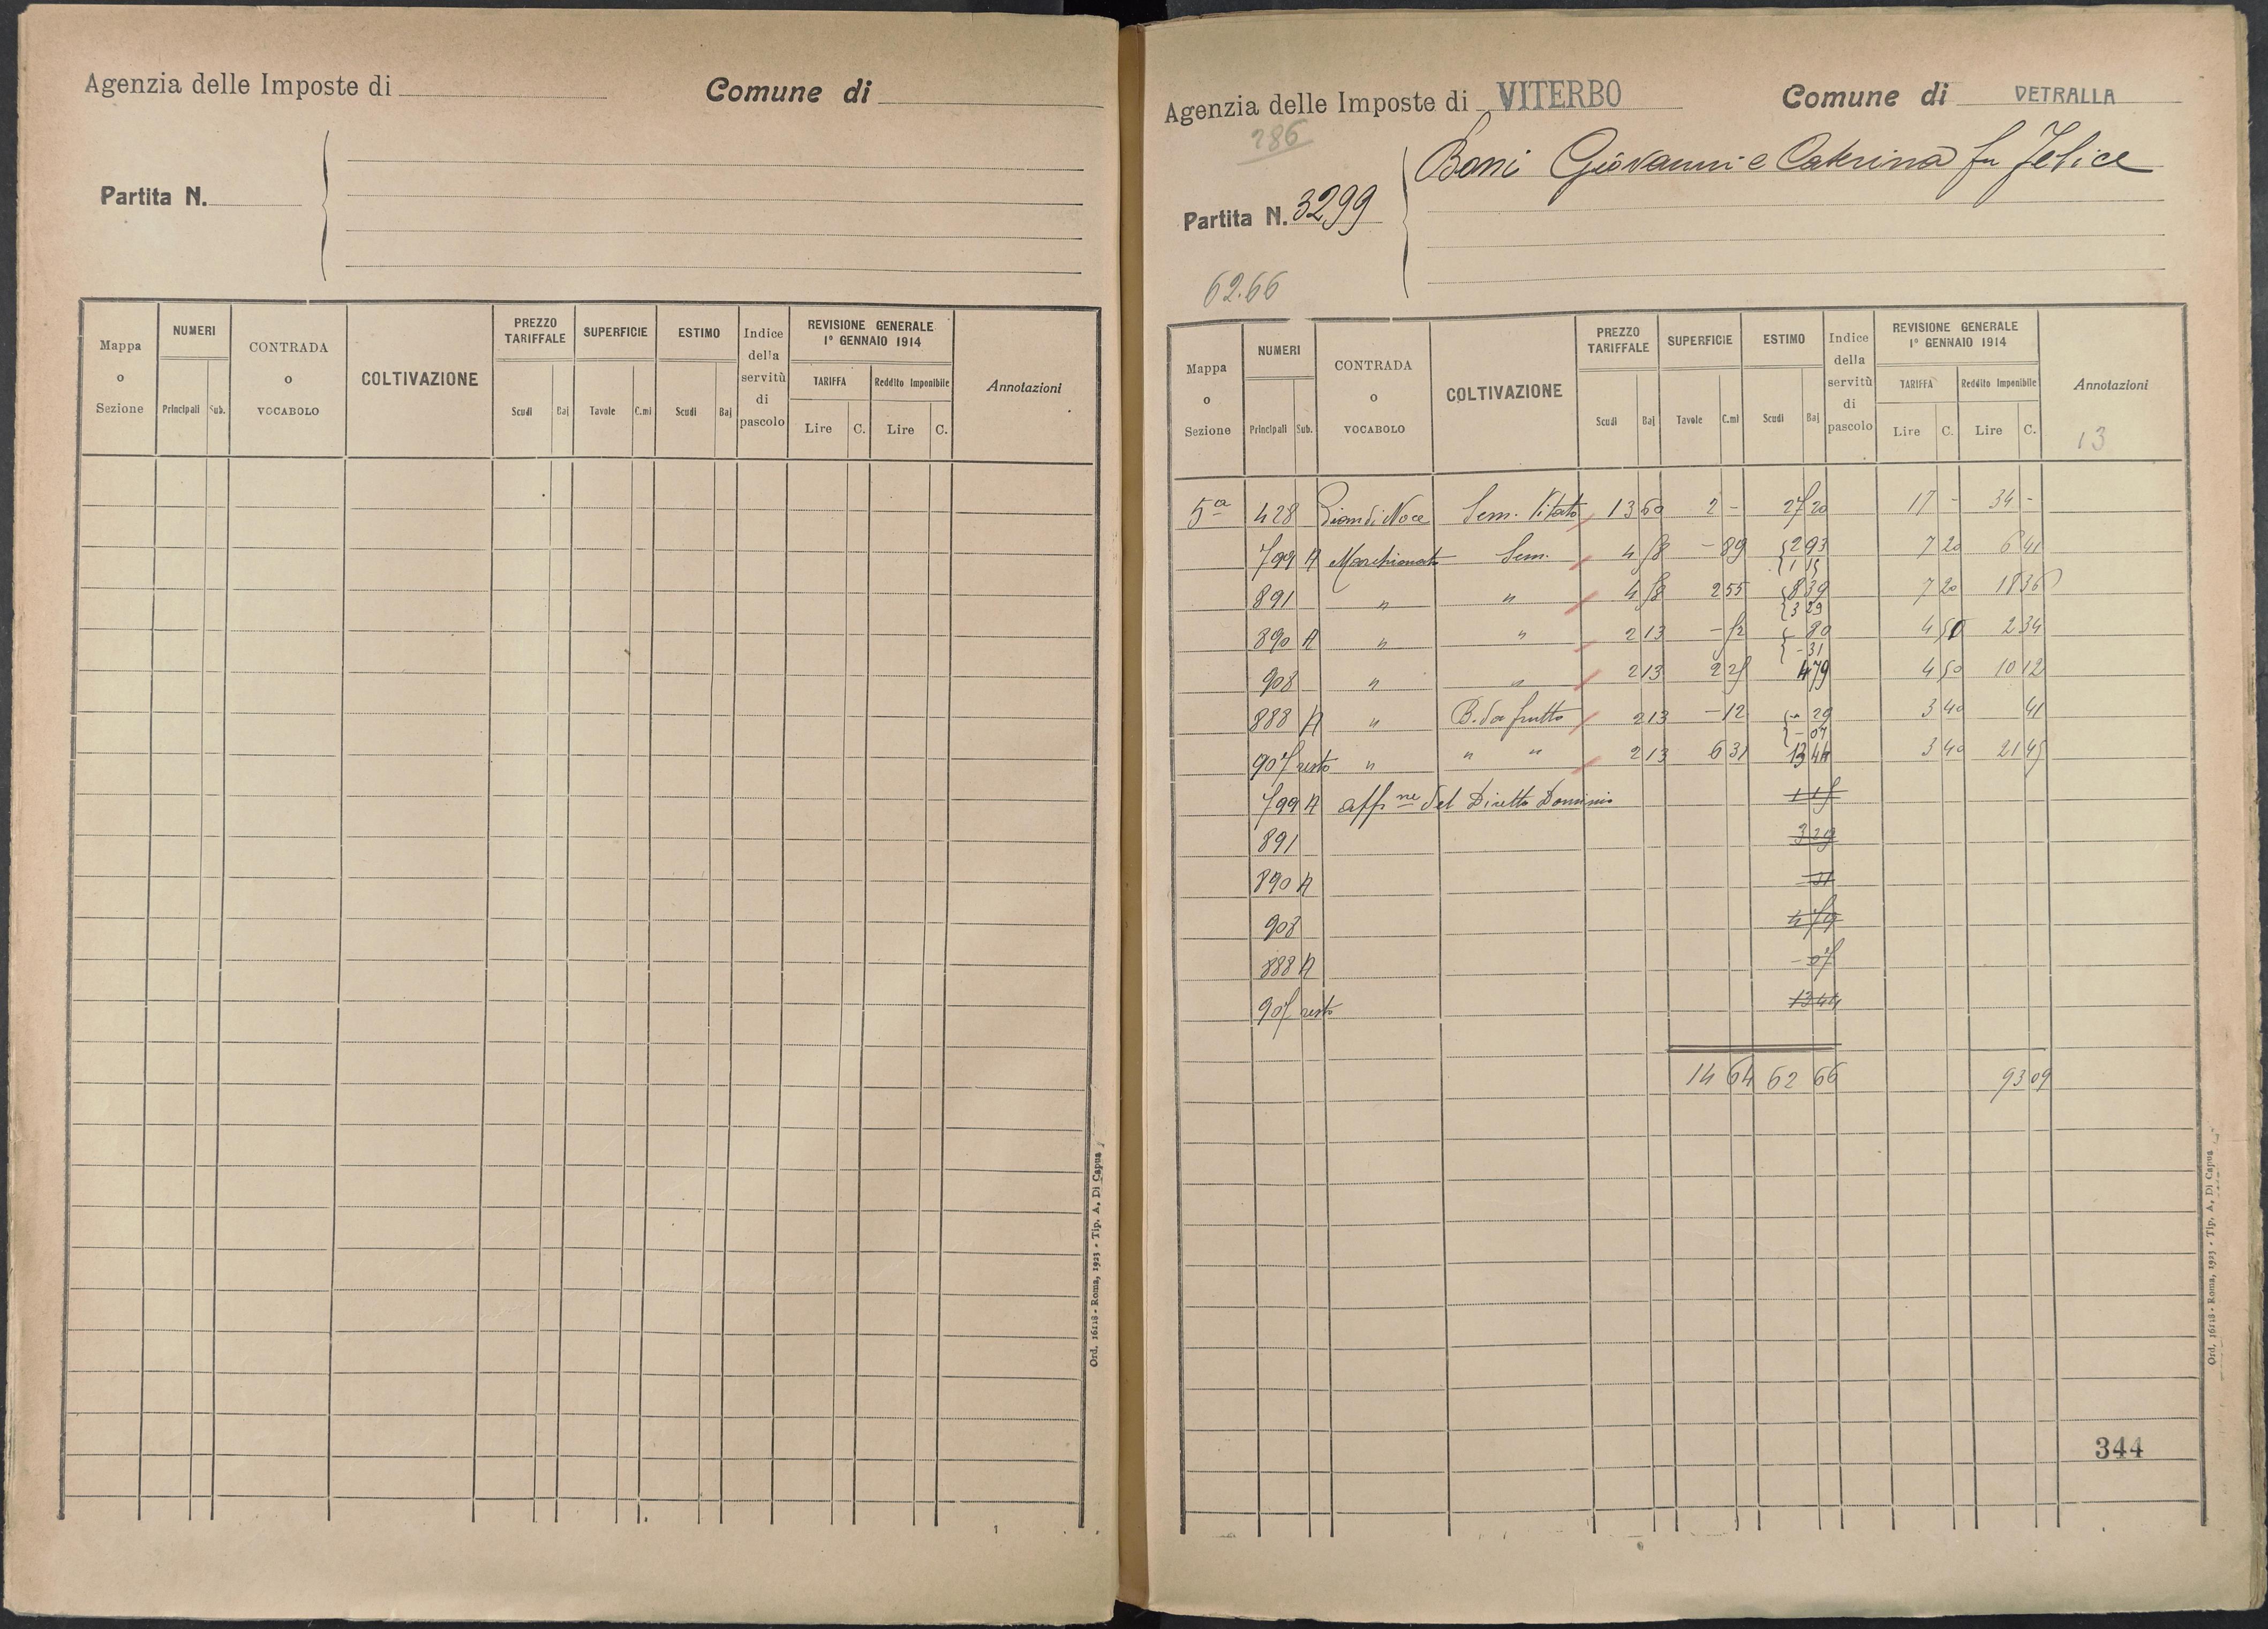 Agenzia delle Imposte di
Comune di
Partita N.
Mappa o Sezione
NUMERI
Principali Sub.
CONTRADA o VOCABOLO
COLTIVAZIONE
PREZZO TARIFFALE
Scudi Baj
SUPERFICIE
Tavole C.mi
ESTIMO
Scudi Baj
Indice della servitù di pascolo
REVISIONE GENERALE
1° GENNAIO 1914
TARIFFA Reddito Imponibile
Lire C. Lire C.
Annotazioni
Ord. 16118 - Roma, 1923 - Tip. A. Di Capua
Agenzia delle Imposte di VITERBO
Comune di VETRALLA
286
Boni Giovanni e Caterina fu Felice
Partita N. 3299
62.66
Mappa o Sezione
NUMERI
Principali Sub.
CONTRADA o VOCABOLO
COLTIVAZIONE
PREZZO TARIFFALE
Scudi Baj
SUPERFICIE
Tavole C.mi
ESTIMO
Scudi Baj
Indice della servitù di pascolo
REVISIONE GENERALE
1° GENNAIO 1914
TARIFFA Reddito Imponibile
Lire C. Lire C.
Annotazioni
13
5a 428 Pian di Noce Sem. Vitato 13 60 2 - 27 20 17 - 34 -
799 A Marchionato Sem. 4 78 - 89 2 93 7 20 6 41
1 15
891 " " 4 78 2 55 8 39 7 20 18 36
3 29
890 A " " 2 13 - 52 - 80 4 50 2 34
- 31
908 " " 2 13 2 25 4 79 4 50 10 12
888 A " B. da frutto 2 13 - 12 - 29 3 40 41
- 07
907 resto " " " 2 13 6 31 13 44 3 40 21 45
799 A aff.ne del Diretto Dominio 1 15
891 3 29
890 A - 31
908 4 79
888 A - 07
907 resto 13 44
14 64 62 66 93 09
344
Ord. 16118 - Roma, 1923 - Tip. A. Di Capua